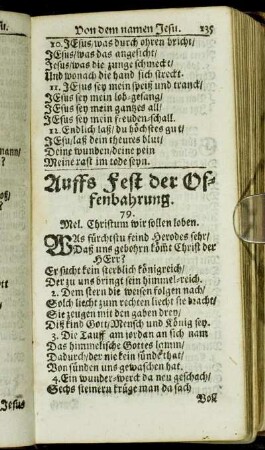 Von dem namen Jesu. 235
10. JEsus/was durch ohren bricht/
JEsus/was das angesicht/
Jesus/was die zunge schmeckt/
Und wonach die hand sich streckt.
11. JEsus sey mein speiß und tranck/
JEsus sey mein lob-gesang/
JEsus sey mein gantzes all/
JEsus sey mein freuden-schall.
12. Endlich laß/du höchstes gut/
JEsu/laß dein theures blut/
Deine wunden/deine pein
Meine rast im tode seyn.
Auffs Fest der Of-
fenbahrung.
79.
Mel. Christum wir sollen loben.
WAs fürchtstu feind Herodes sehr/
Daß uns gebohrn kömt Christ der
HErr?
Er sucht kein sterblich königreich/
Der zu uns bringt sein himmel-reich.
2. Dem stern die weisen folgen nach/
Solch liecht zum rechten liecht sie bracht/
Sie zeugen mit den gaben drey/
Diß kind Gott/Mensch und König sey.
3. Die Tauff am jordan an sich nam
Das himmelische Gottes lamm/
Dadurch/der nie kein sünde that/
Von sünden uns gewaschen hat.
4. Ein wunder-werck da neu geschach/
Sechs steinern krüge man da sach
Voll
mann/
Jesus